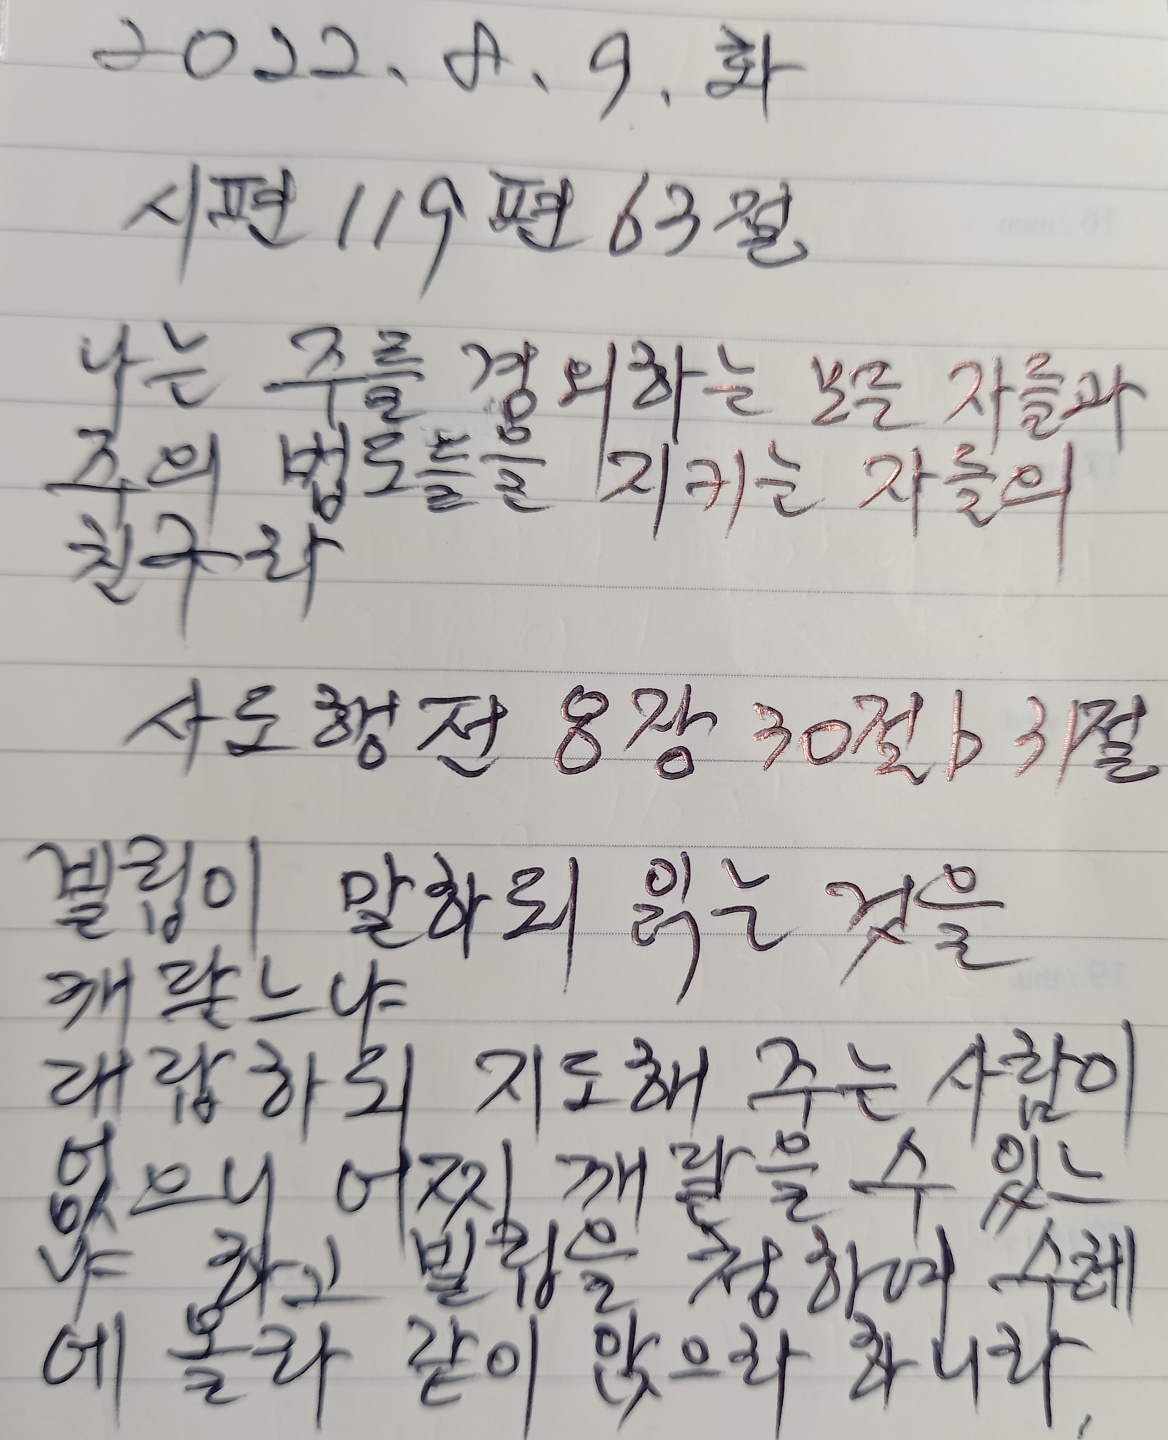 2022. 8. 9. 화
시편 119편 63절
나는 주를 경외하는 모든 자들과
주의 법도들을 지키는 자들의
친구라
사도행전 8장 30절b 31절
빌립이 말하되 읽는 것을
깨닫느냐
대답하되 지도해 주는 사람이
없으니 어찌 깨달을 수 있느
냐 하고 빌립을 청하여 수레
에 올라 같이 앉으라 하니라.